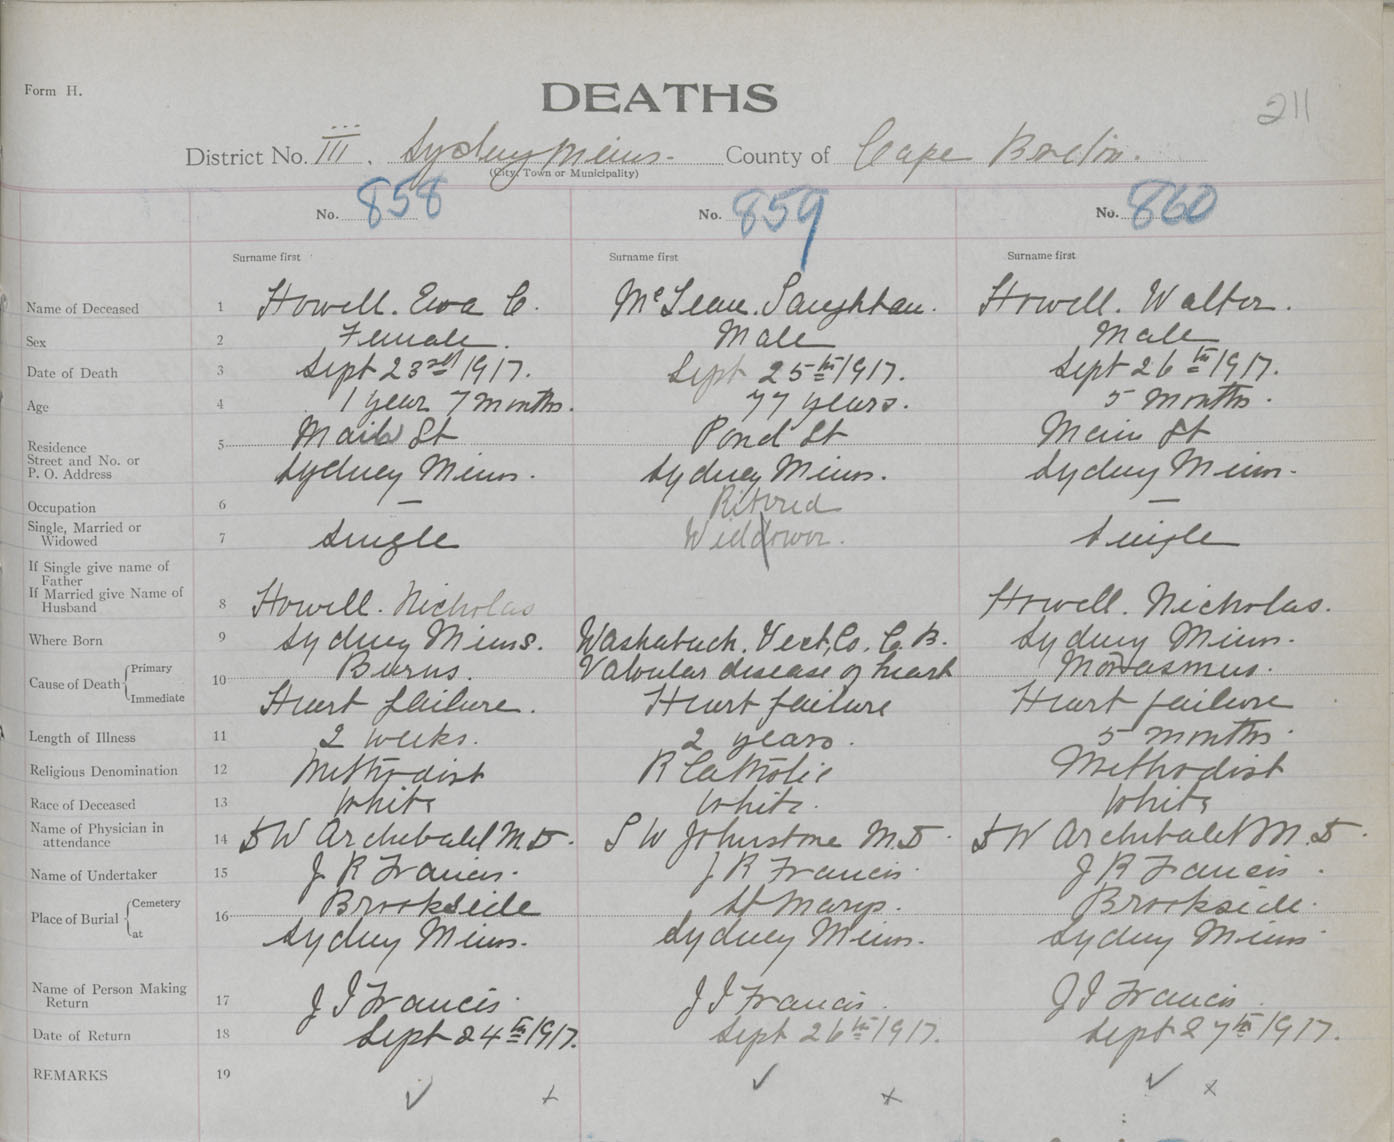 Form H.
DEATHS
211
District No. III. Sydney Mines. County of Cape Breton.
(City, Town or Municipality)
No. 858 No. 859 No. 860
Surname first Surname first Surname first
Name of Deceased 1 Howell. Ewa C. McLean. Howell. Walter.
Sex 2 Female. Male Male
Date of Death 3 Sept 23rd 1917. Sept 25th 1917. Sept 26th 1917.
Age 4 1 year 7 months. 77 years. 5 months.
Residence 5 Main St Pond St Main St
Street and No. or
P. O. Address Sydney Mines. Sydney Mines. Sydney Mines.
Occupation 6 — Ritered —
Single, Married or
Widowed 7 Single Widdower. Single
If Single give name of
Father
If Married give Name of
Husband 8 Howell. Nicholas Howell. Nicholas.
Where Born 9 Sydney Mines. Washabuck. Vect. Co. C. B. Sydney Mines.
Cause of Death Primary 10 Burns. Valvular disease of heart Morasmus.
Immediate Heart failure. Heart failure Heart failure
Length of Illness 11 2 weeks. 2 years. 5 months.
Religious Denomination 12 Methodist R Catholic Methodist
Race of Deceased 13 White White. White
Name of Physician in
attendance 14 W Archibald M.D. S W Johnstone M.D. W Archibald M.D.
Name of Undertaker 15 J R Francis. J R Francis. J R Francis.
Place of Burial Cemetery 16 Brookside St Marys. Brookside.
at Sydney Mines. Sydney Mines. Sydney Mines
Name of Person Making
Return 17 J J Francis. J J Francis. J J Francis.
Date of Return 18 Sept 24th 1917. Sept 26th 1917. Sept 27th 1917.
REMARKS 19
✓ x ✓ x ✓ x